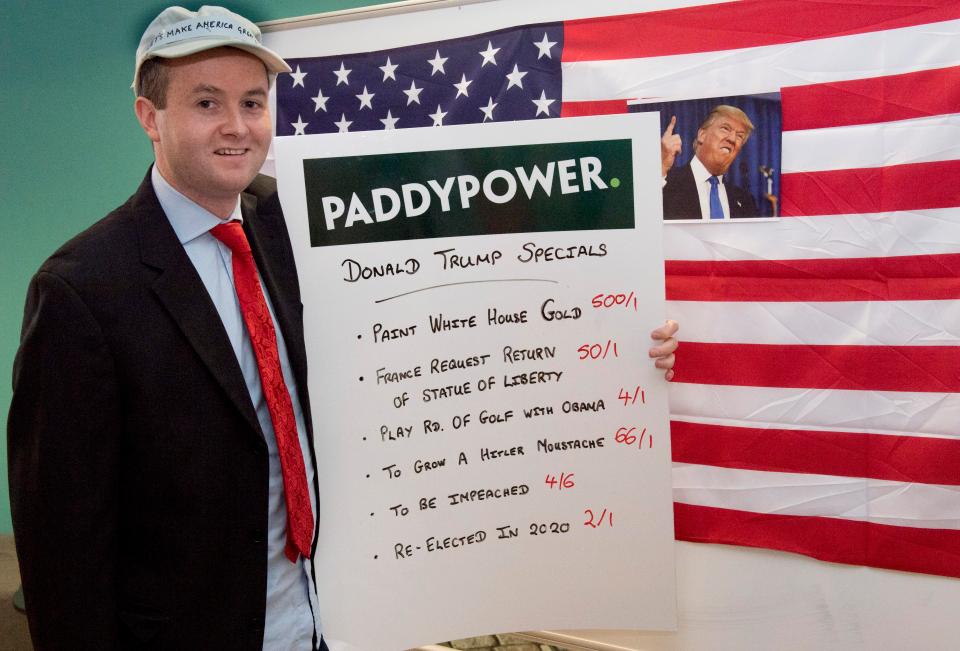 LET'S MAKE AMERICA GREAT
PADDYPOWER.
DONALD TRUMP SPECIALS
• PAINT WHITE HOUSE GOLD 500/1
• FRANCE REQUEST RETURN 50/1
OF STATUE OF LIBERTY
• PLAY RD. OF GOLF WITH OBAMA 4/1
• TO GROW A HITLER MOUSTACHE 66/1
• TO BE IMPEACHED 4/6
• RE-ELECTED IN 2020 2/1